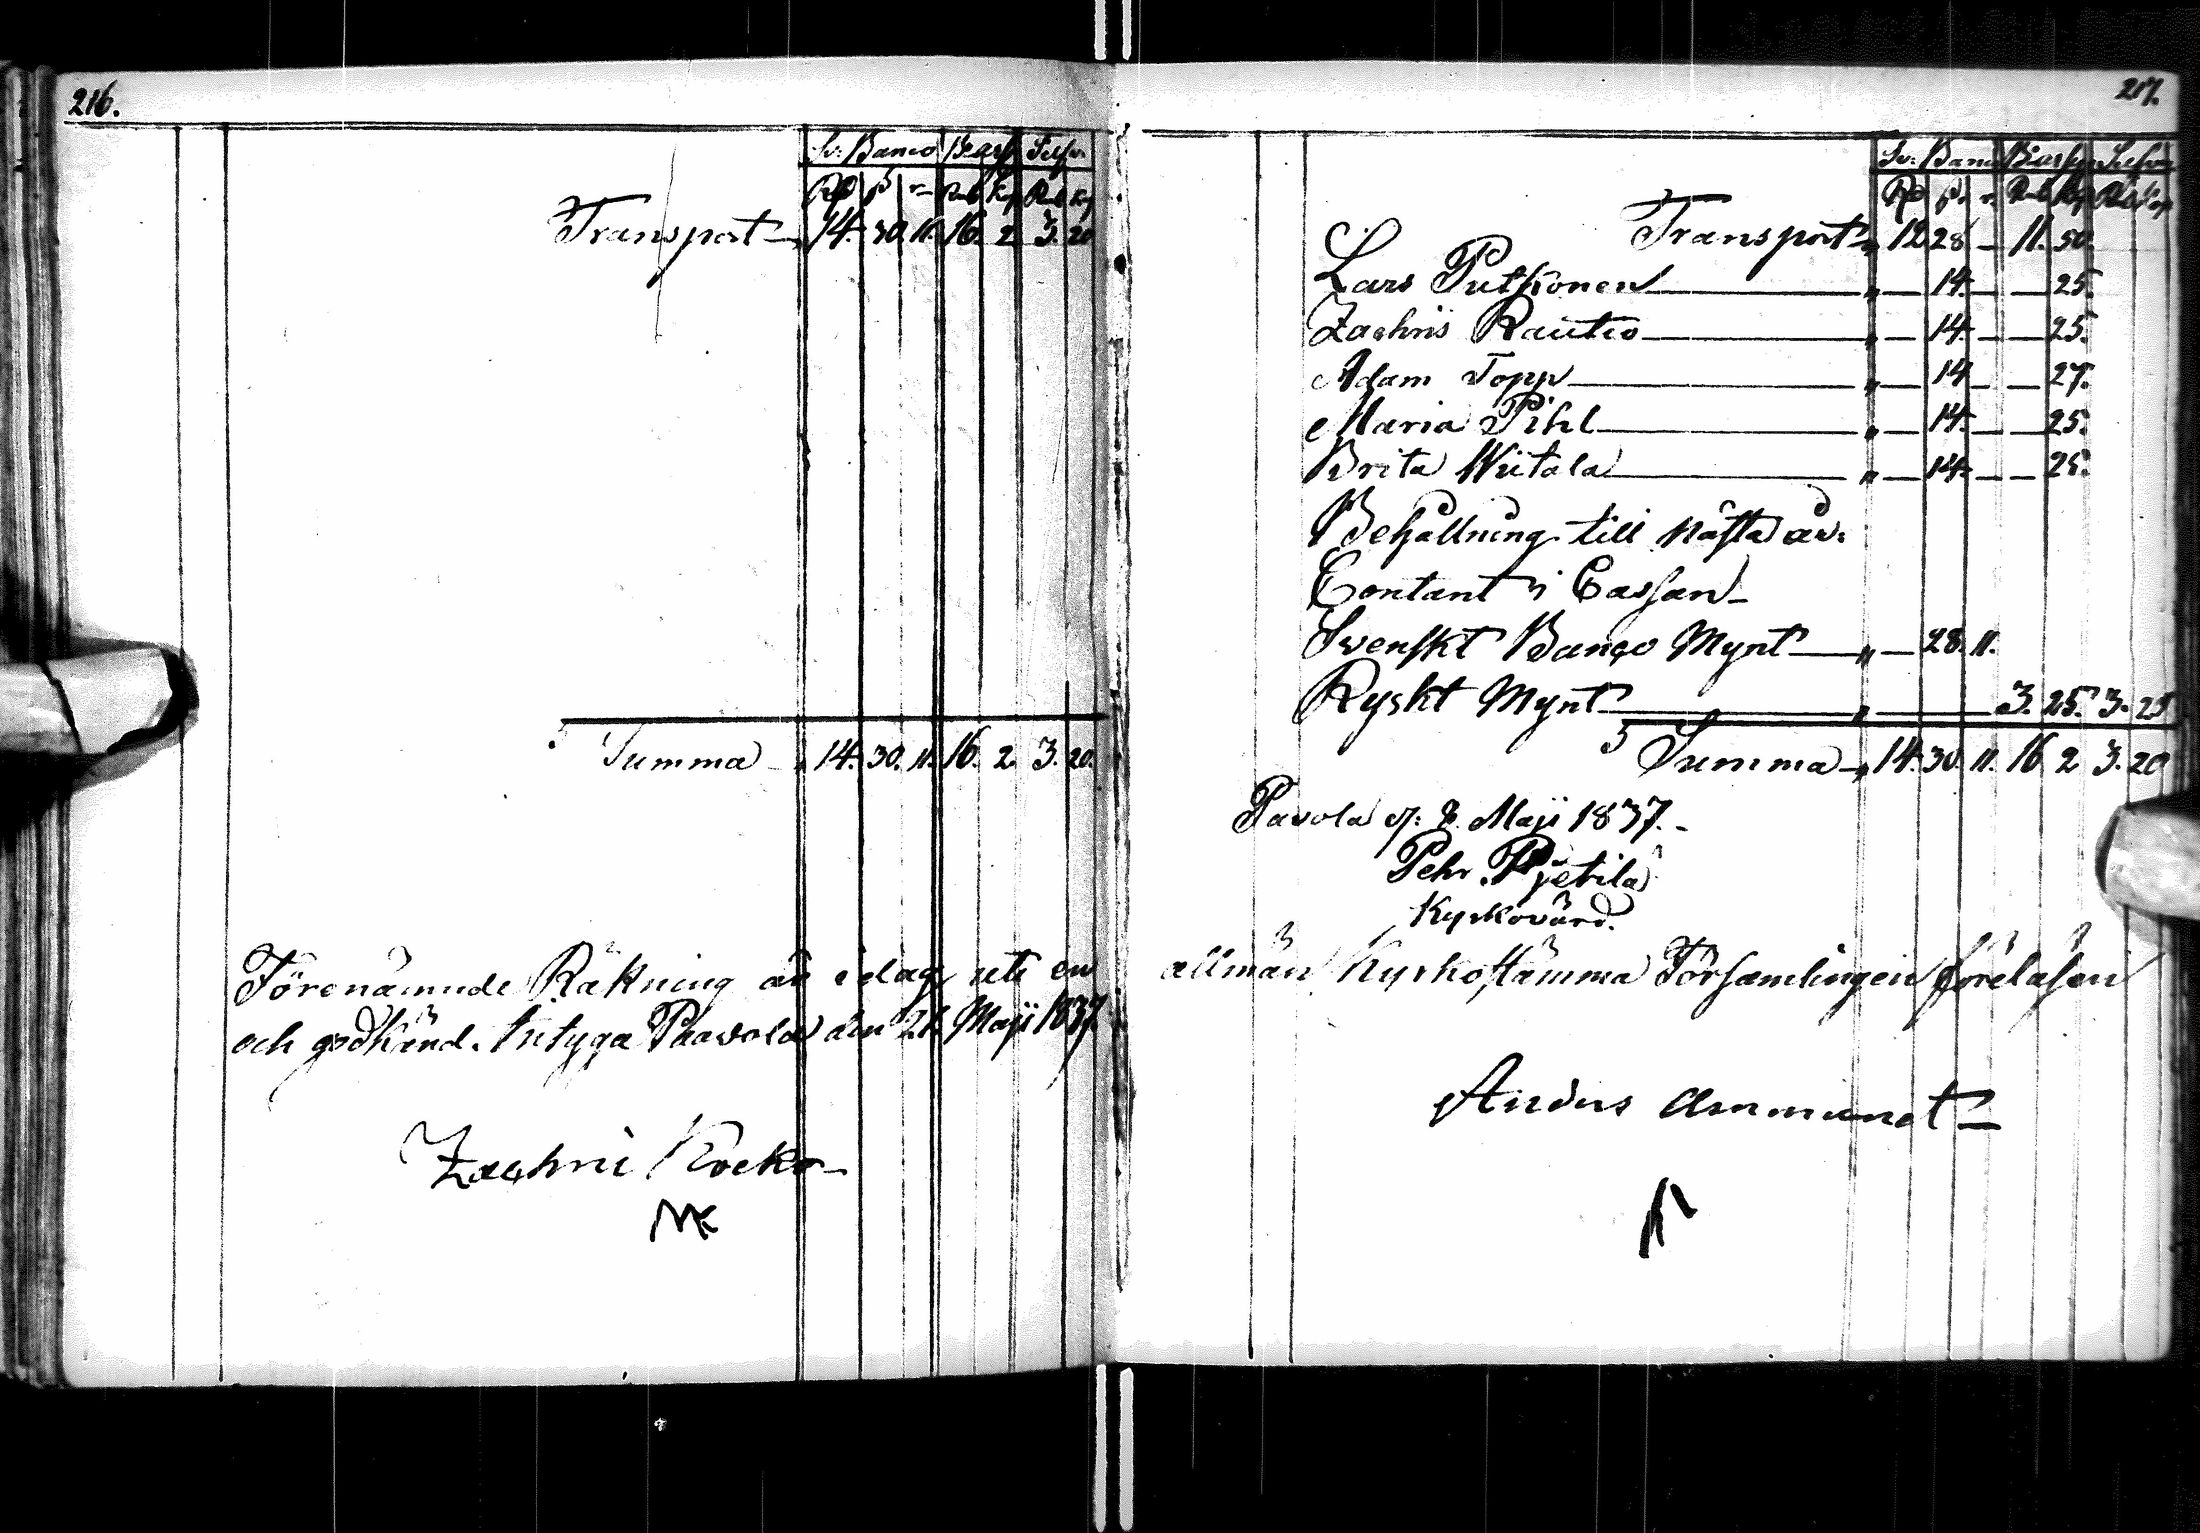 216.
Sv: Banco Beasf Silfv.
Rd ß r. Rub Kop Rub Kop
Transport „ 14. 30. 11. 16. 2 3. 20
Summa „ 14. 30. 11. 16. 2. 3. 20.
Förenämnde Räkning är idag uti en
och godkänd. Intyga Paavola den 21. Maji 1837
Zachri Kocko
217.
Sv: Banco
Rd ß r. Rub Kop Rub Kop
Transport „ 12 28 — 11. 50.
Lars Putkonen „ — 14. — — 25.
Zachris Rautio „ — 14. — — 25.
Adam Topp „ — 14 — — 27.
Maria Pihl „ — 14. — — 25.
Brita Wiitala „ — 14. — — 25.
Behållning till nästa år.
Contant i Cassan
Swenskt Banco Mynt „ — 28. 11.
Ryskt Mynt „ — 3. 25. 3. 20
Summa „ 14. 30. 11. 16 2 3. 20
Pavola d. 8. Maji 1837.
Pehr Pjetilä
Kyrkovärd.
allmän Kyrkostämma Församlingen föreläsen
Anders Ammunet